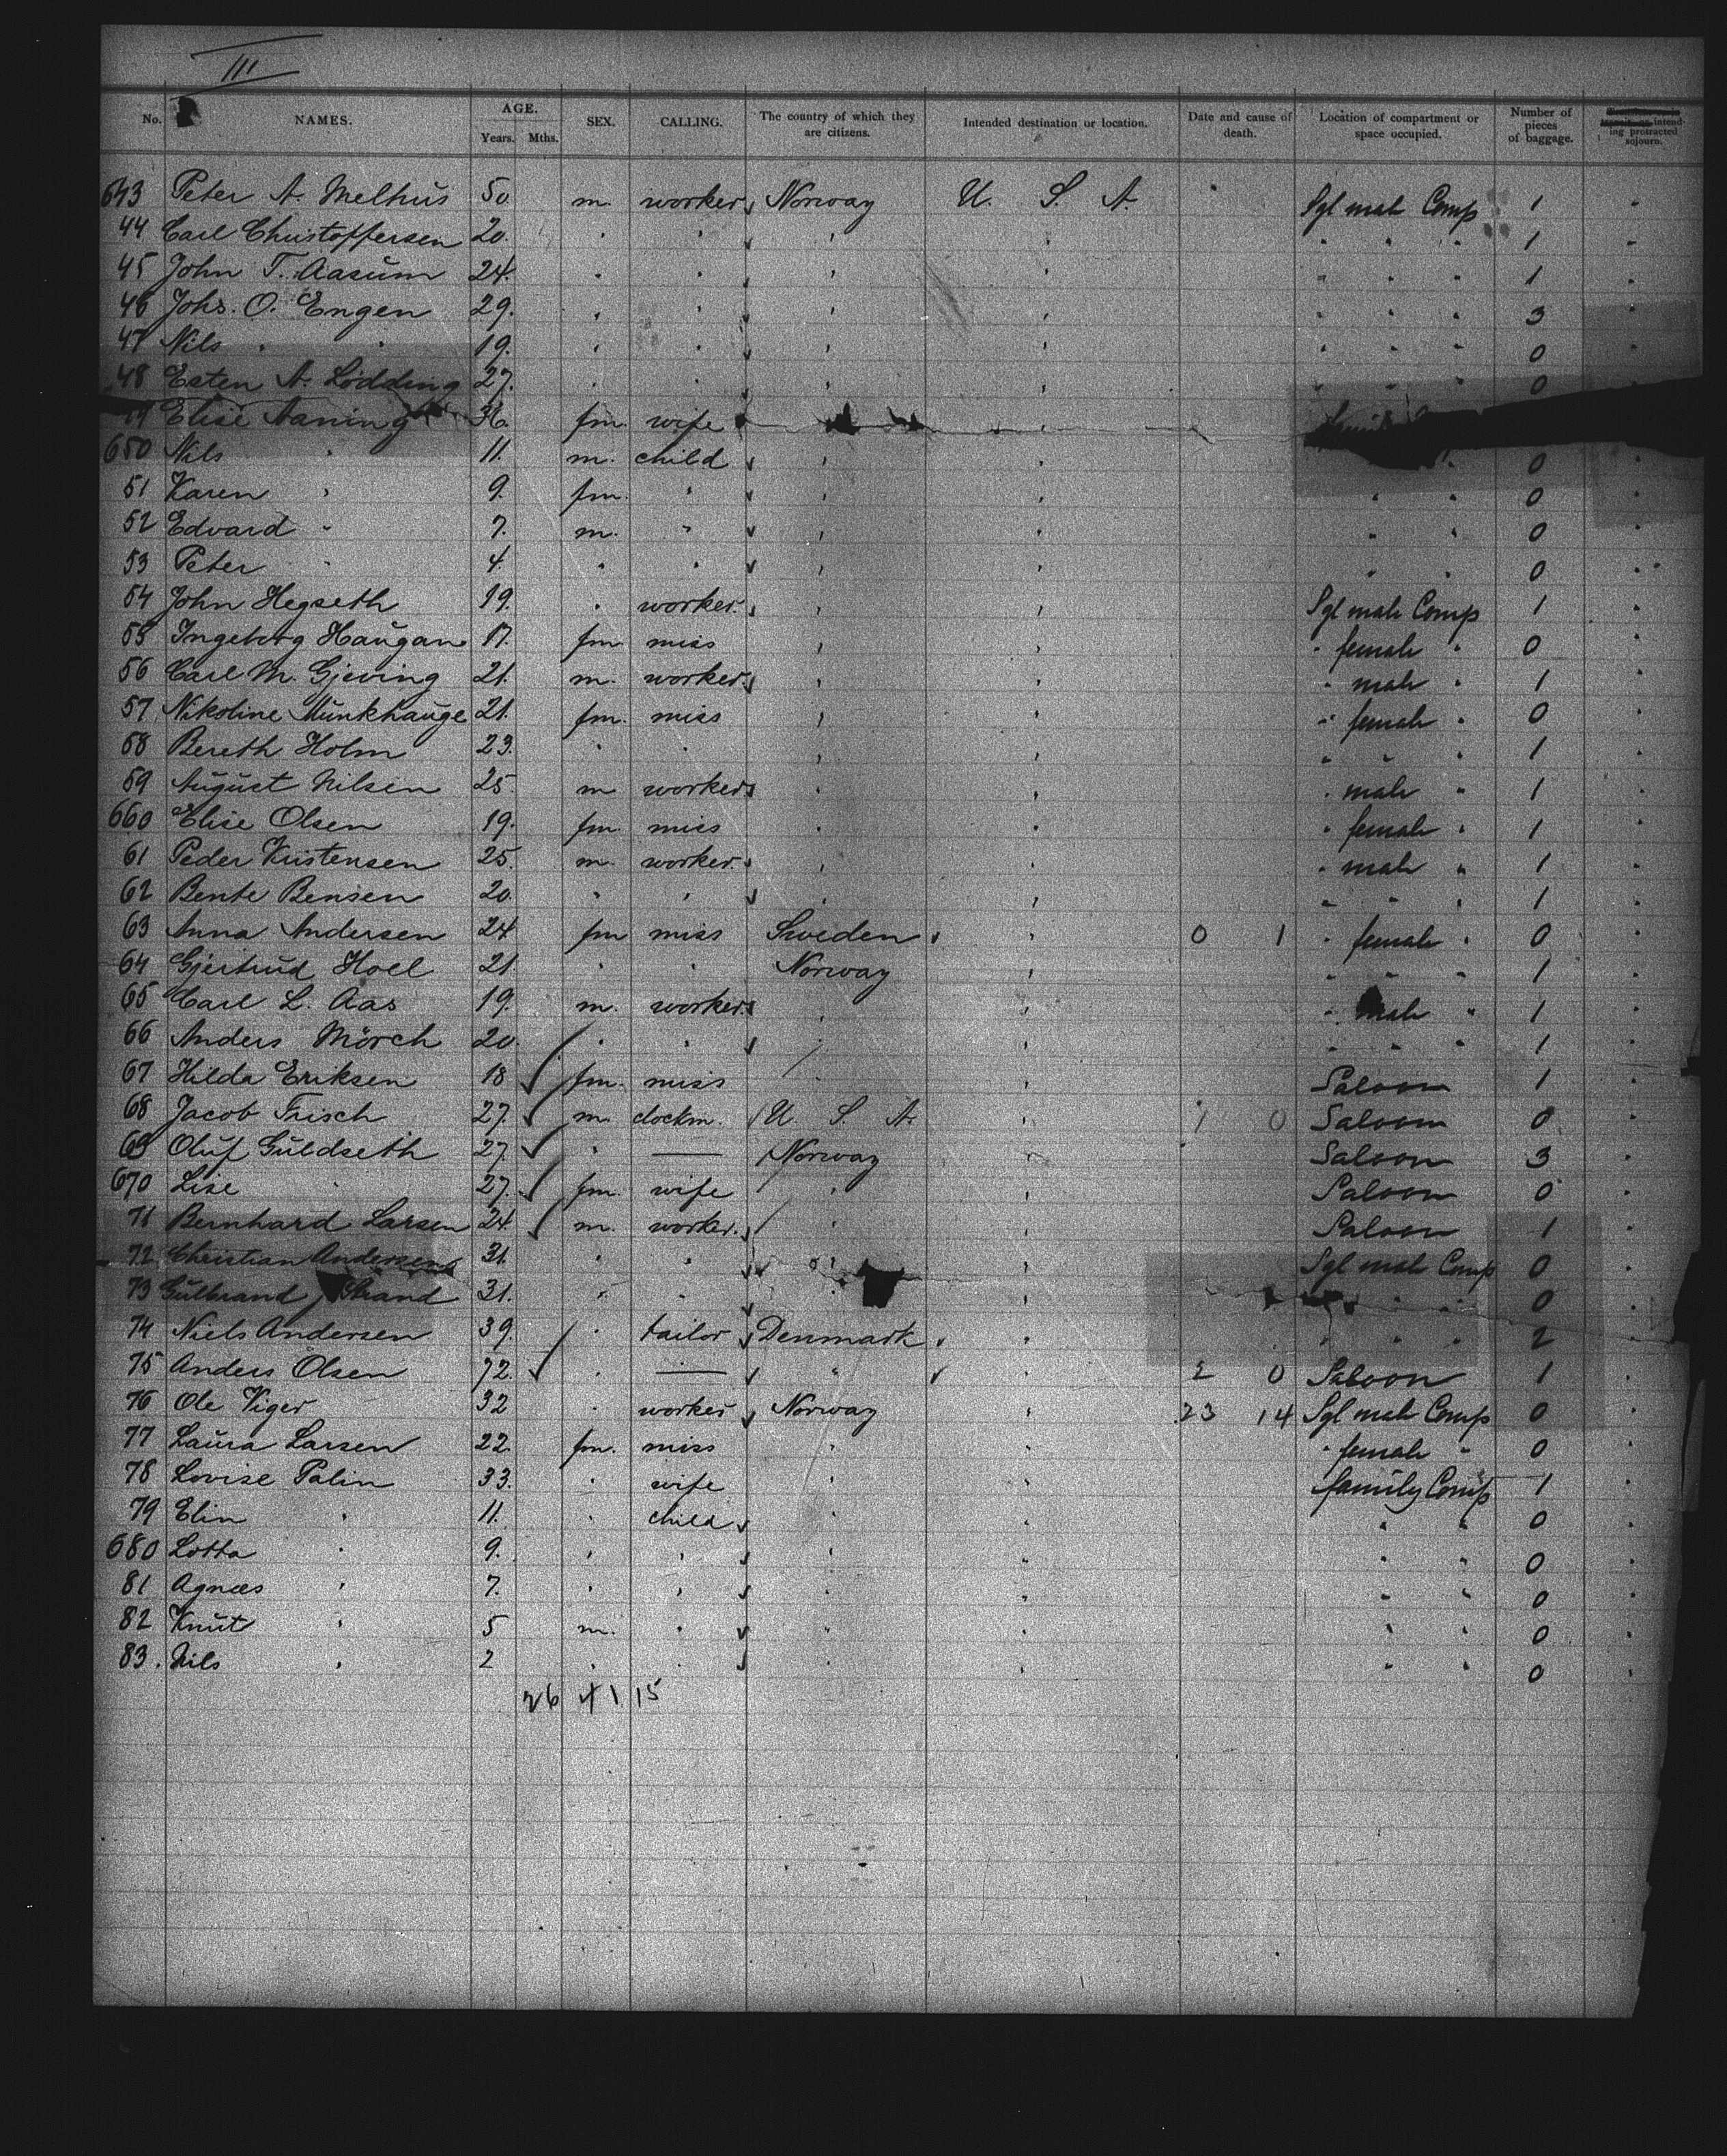 III
No. NAMES. AGE. Years. Mths. SEX. CALLING. The country of which they are citizens. Intended destination or location. Date and cause of death. Location of compartment or space occupied. Number of pieces of baggage. intending protracted sojourn.
643 Peter A. Melhus 50 m. worker Norway U. S. A. Sgl male Comp 1 "
44 Carl Christoffersen 20. " " " " " " " 1 "
45 John T. Aasum 24. " " " " " " " 1 "
46 Johs. O. Engen 29. " " " " " " " 3 "
47 Nils " " 19. " " " " " " " 0 "
48 Esten A. Lödding 27. " " " " " " " 0
49 Elise Aaning 36. fm. wife "
650 Nils " 11. m. child " " " 0 "
51 Karen " 9. fm. " " " " " 0 "
52 Edvard " 7. m. " " " " " 0 "
53 Peter " 4. " " " " " " 0 "
54 John Hegseth 19. " worker. " " Sgl male Comp 1 "
55 Ingeborg Haugan 17. fm miss " " " female " 0 "
56 Carl M. Gjeving 21. m. worker " " " male " 1 "
57 Nikoline Munkhauge 21. fm. miss " " " female " 0 "
58 Bereth Holm 23. " " " " " " " 1 "
59 August Nilsen 25. m worker " " " male " 1 "
660 Elise Olsen 19. fm. miss " " " female " 1 "
61 Peder Kristensen 25. m. worker. " " " male " 1 "
62 Bente Bensen 20. " " " " " " " 1 "
63 Anna Andersen 24 fm miss Sweden " 0 1 " female " 0 "
64 Gjertrud Hoel 21 " " Norway " " " " 1 "
65 Carl L. Aas 19. m. worker. " " " male " 1 "
66 Anders Mörch 20. " " " " " " 1 "
67 Hilda Eriksen 18 fm. miss " " Saloon 1 "
68 Jacob Frisch 27. m. clockm. U. S. A. " 1 0 Saloon 0 "
69 Oluf Guldseth 27. " — Norway " Saloon 3 "
670 Lise " 27. fm. wife " " Saloon 0 "
71 Bernhard Larsen 24. m. worker. " " Saloon 1 "
72 Christian Andersen 31. " " " " Sgl male Comp 0 "
73 Gulbrand Strand 31. " " " " " " 0 "
74 Niels Andersen 39. " tailor Denmark " " " " 2 "
75 Anders Olsen 72. " — " " 2 0 Saloon 1 "
76 Ole Viger 32 " worker Norway " 23 14 Sgl male Comp 0 "
77 Laura Larsen 22. fm. miss " " " female " 0 "
78 Lovise Palin 33. " wife " " family Comp 1 "
79 Elin " 11. " child " " " " 0 "
680 Lotta " 9. " " " " " " 0 "
81 Agnæs " 7. " " " " " " 0 "
82 Knut " 5 m. " " " " " 0 "
83. Nils " 2 " " " " " " 0 "
26 41 15